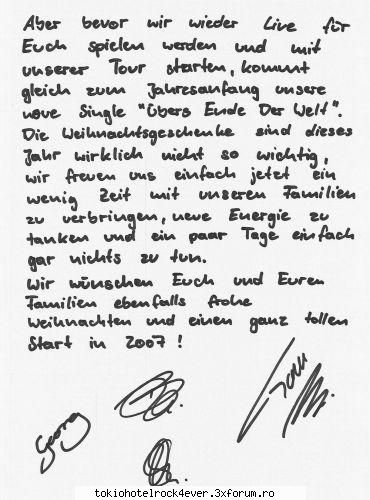 Aber bevor wir wieder Live für
Euch spielen werden und mit
unserer Tour starten, kommt
gleich zum Jahresanfang unsere
neue Single "Übers Ende Der Welt".
Die Weihnachtsgeschenke sind dieses
Jahr wirklich nicht so wichtig,
wir freuen uns einfach jetzt ein
wenig Zeit mit unseren Familien
zu verbringen, neue Energie zu
tanken und ein paar Tage einfach
gar nichts zu tun.
Wir wünschen Euch und Euren
Familien ebenfalls frohe
Weihnachten und einen ganz tollen
Start in 2007!
Georg
tokiohotelrock4ever.3xforum.ro